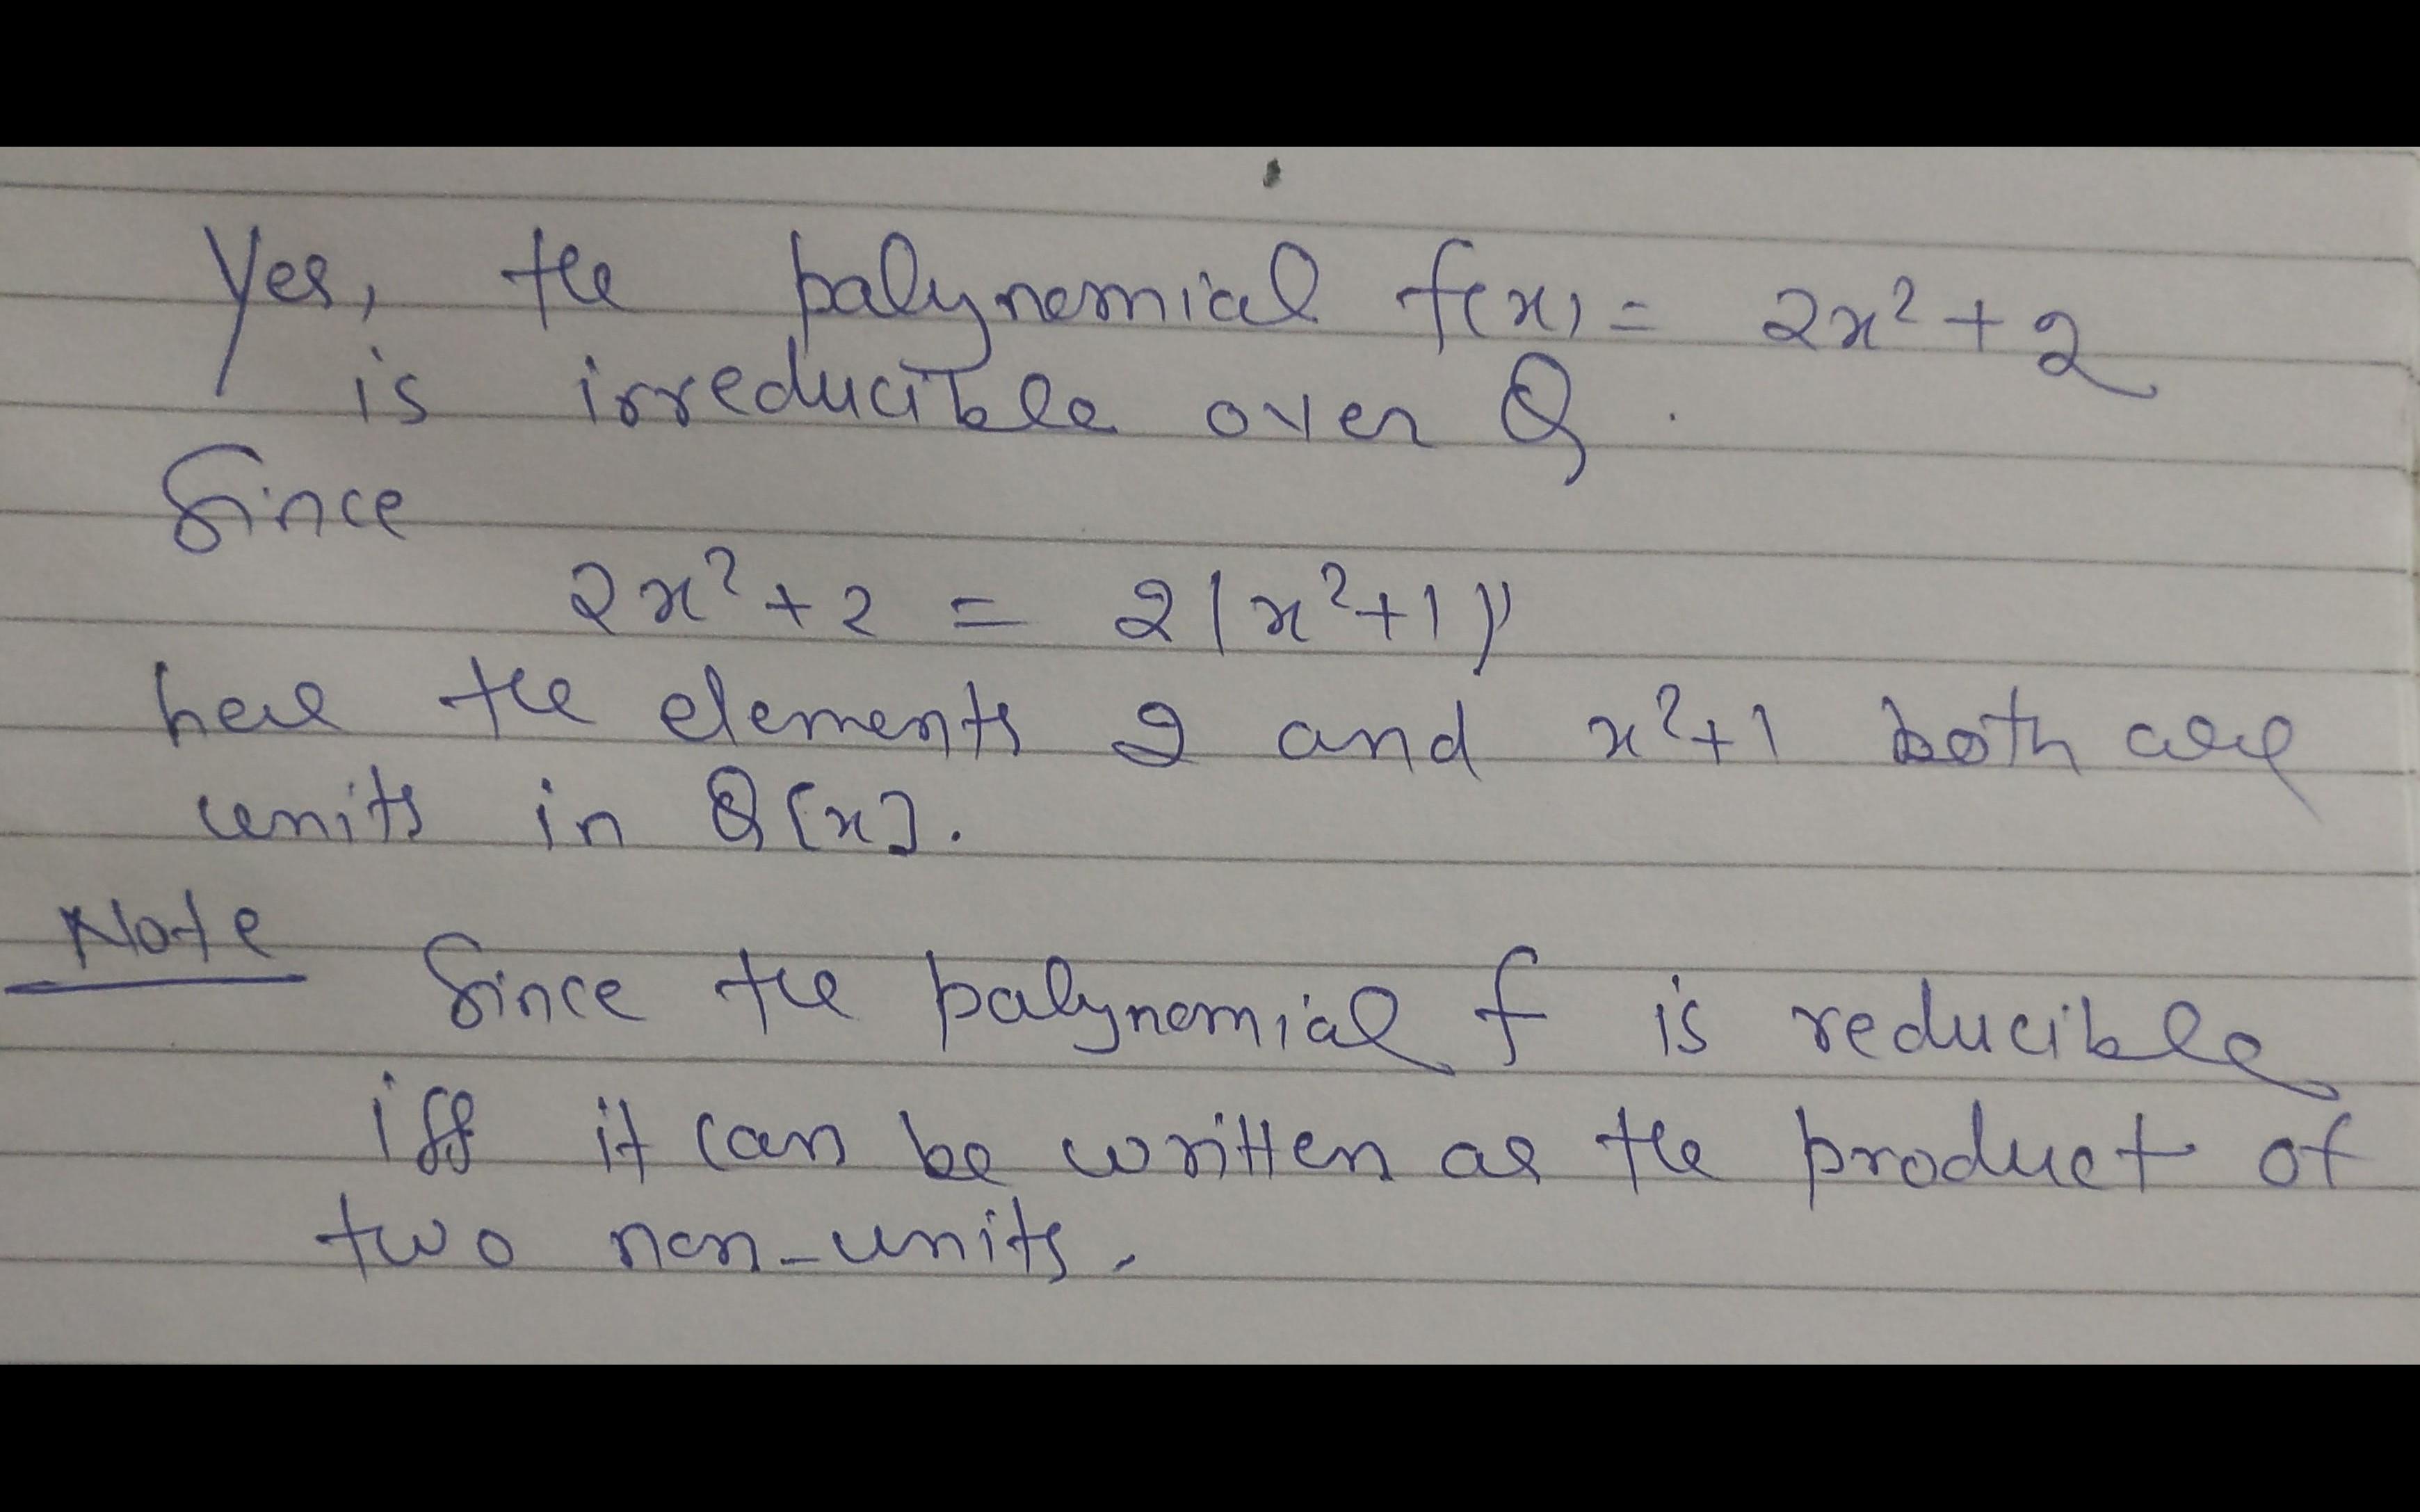 Yes, the palynomial f(x) = 2x² + 2
is irreducible over Q.
Since
2x² + 2 = 2(x²+1)
here the elements 2 and x²+1 both are
units in Q[x].
Note Since the palynomial f is reducible
iff it can be written as the product of
two non-units.